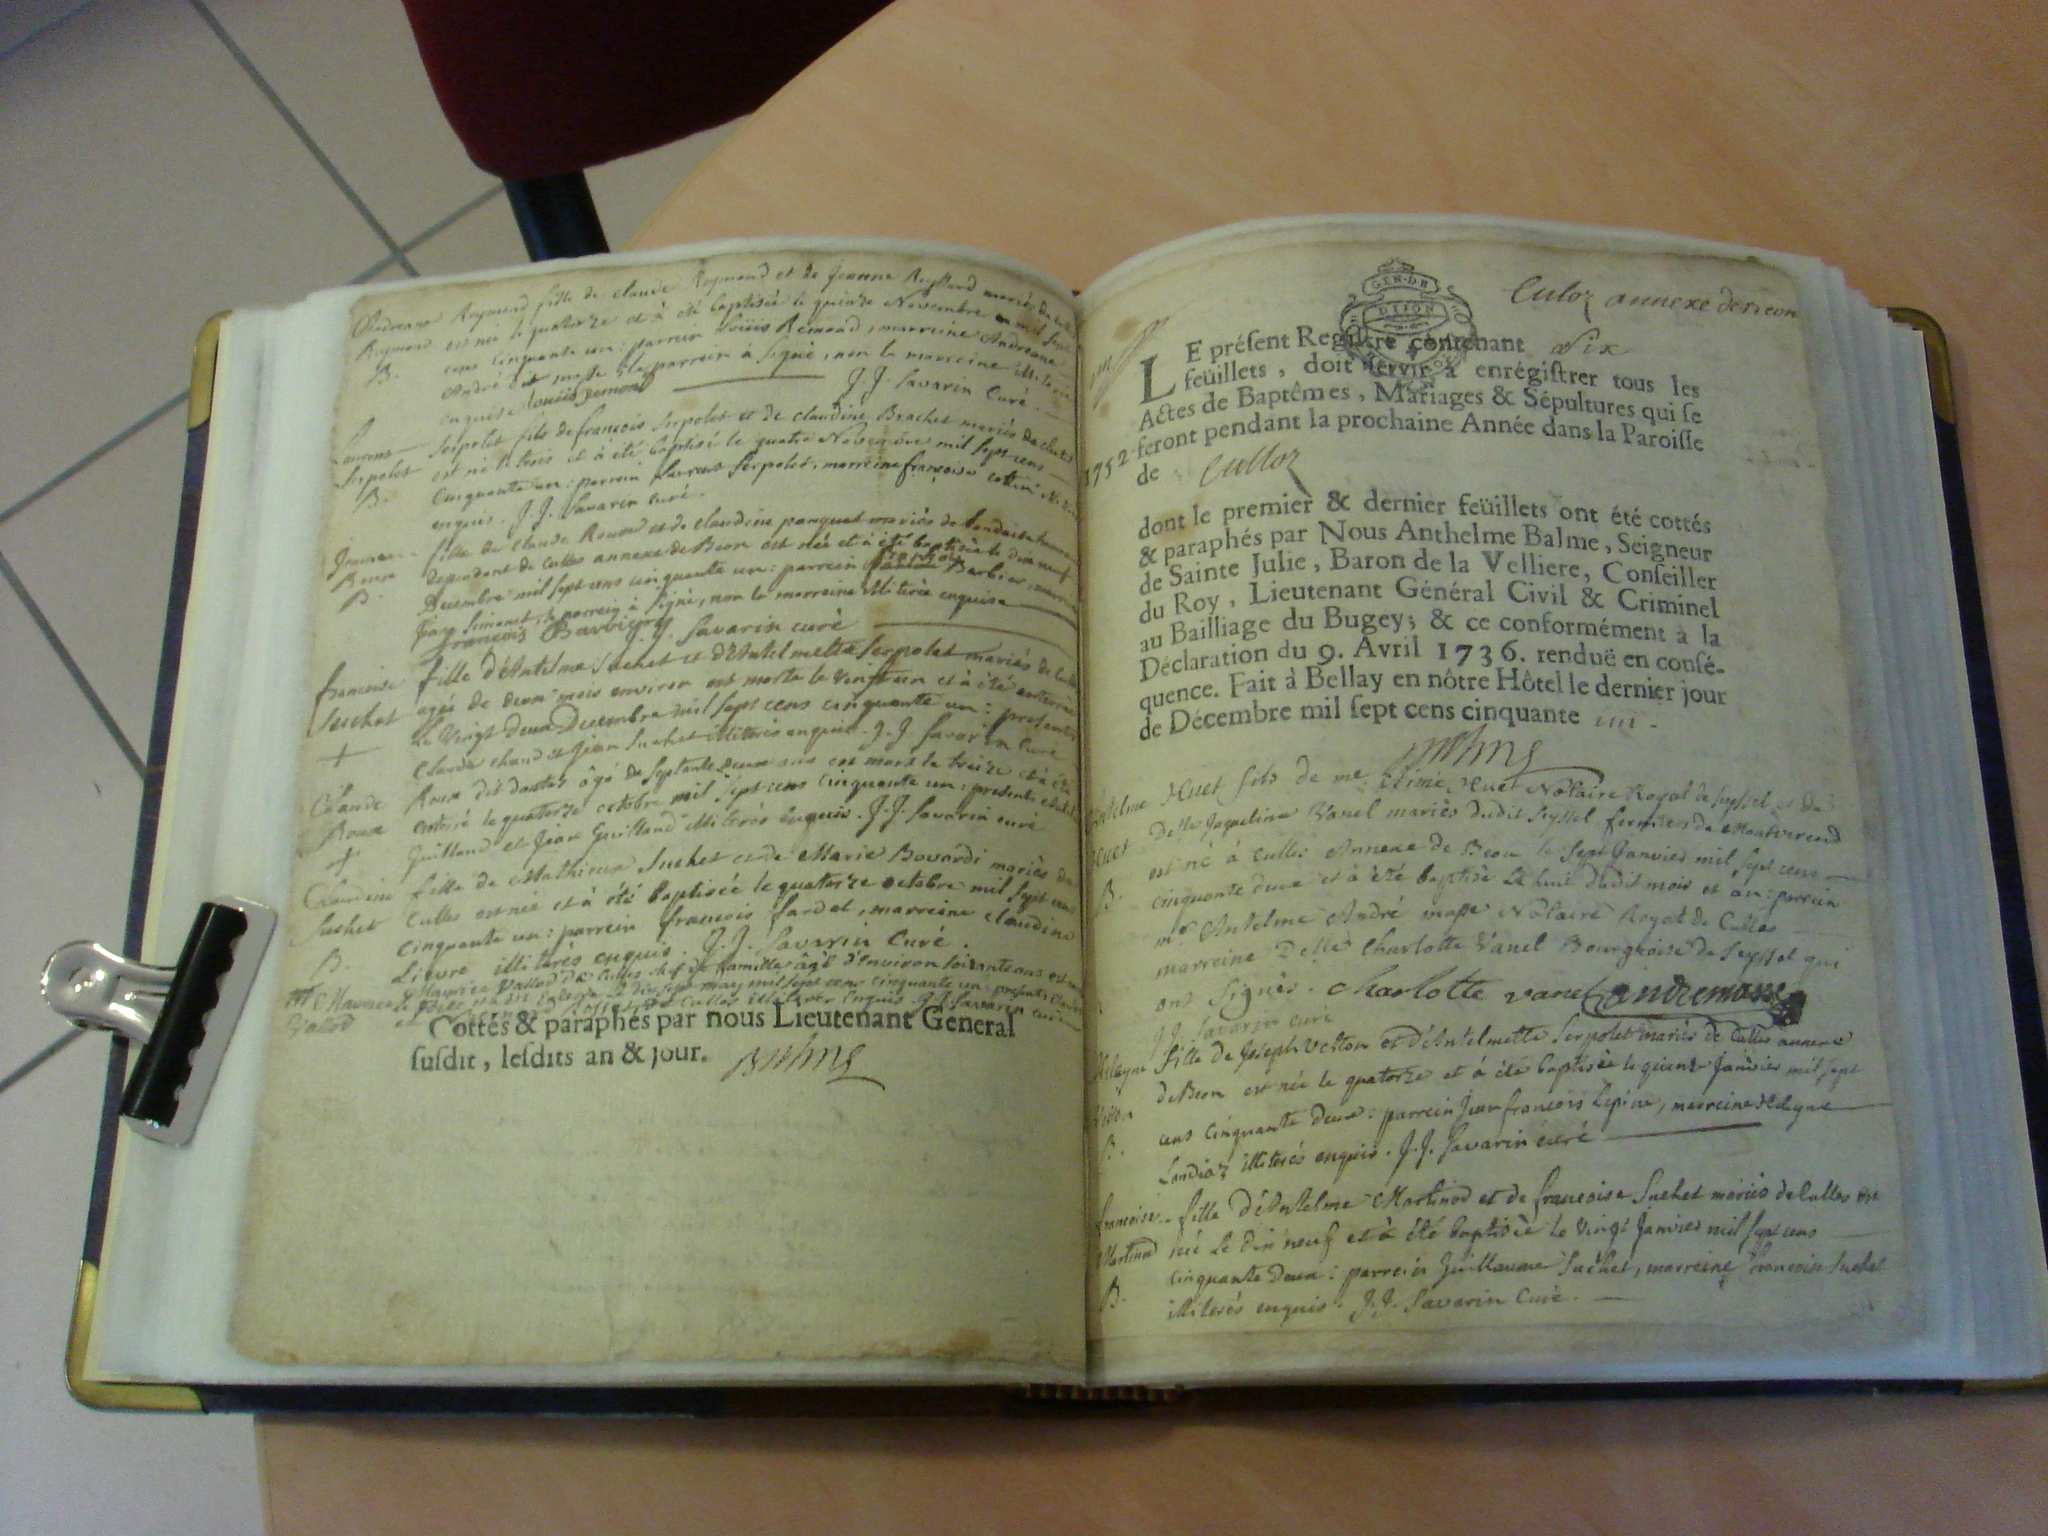 Raymond fille de claude Raymond et de Jeanne
Raymond est née le quatorze et à été baptisée le quinze Novembre mil sept
B. cens cinquante un: parrein Louis Remond, marreine Andreane
André le parrein à signé, non la marreine
enquise Louis J. J. Savarin Curé.
Laurens Serpolet fils de françois Serpolet et de claudine Brachet mariés de
Serpolet est né le trois et à été baptisé le quatre Novembre mil sept cens
B. cinquante un: parrein Laurens Serpolet, marreine françoise
enquis. J. J. Savarin curé.
fille de claude Roux et de claudine mariés de
Roux dependant de Culles annexe de Beon est née et à été baptisée le dix neuf
B. Decembre mil sept cens cinquante un: parrein françois Barbier,
Simonet, le parrein à signé, non la marreine illiterée enquise
françois J. J. Savarin curé
francoise fille d'Antelme Suchet et d'Antelmette Serpolet mariés de
Suchet agée de deux mois environ est morte le vingt un et à été enterrée
+ Le vingt deux Decembre mil sept cens cinquante un: presents
Claude et Jean Suchet illiterés enquis. J. J. Savarin Curé
Claude Roux dit âgé de septante deux ans est mort le treize et à été
Roux enterré le quatorze octobre mil sept cens cinquante un: presents
+ Guilland et Jean Guilland illiterés enquis. J. J. Savarin curé
Claudine fille de Mathieu Suchet et de Marie Bovardi mariés de
Suchet Culles est née et à été baptisée le quatorze octobre mil sept cens
B. cinquante un: parrein françois fardel, marreine claudine
Lievre illiterés enquis. J. J. Savarin Curé.
Maurice Vallod de Culles chef de famille âgé d'environ soixante ans
Vallod
Cottés & paraphés par nous Lieutenant General
susdit, lesdits an & jour. Balme
Culoz annexe de Beon
GEN. DE
DIJON
LE présent Registre contenant Six
feüillets, doit servir à enrégistrer tous les
Actes de Baptêmes, Mariages & Sépultures qui se
feront pendant la prochaine Année dans la Paroisse
1752
de Culloz
dont le premier & dernier feüillets ont été cottés
& paraphés par Nous Anthelme Balme, Seigneur
de Sainte Julie, Baron de la Velliere, Conseiller
du Roy, Lieutenant Général Civil & Criminel
au Bailliage du Bugey; & ce conformément à la
Déclaration du 9. Avril 1736. renduë en consé-
quence. Fait à Bellay en nôtre Hôtel le dernier jour
de Décembre mil sept cens cinquante un.
Balme
Antelme Huet fils de me Aimé Huet Notaire Royal de Seyssel et de
Huet Delle Jaqueline Vanel mariés dudit Seyssel fermiers de Montverand
est né à Culles Annexe de Beon le sept Janvier mil sept cens
B. cinquante deux et à été baptisé le huit dudit mois et an: parrein
mr Antelme André masse Notaire Royal de Culles
marreine Delle Charlotte Vanel Bourgeoise de Seyssel qui
ont signés. charlotte vanel andremasse
J. J. Savarin curé
fille de Joseph et d'Antelmette Serpolet mariés de Culles annexe
de Beon est née le quatorze et à été baptisée le quinze Janvier mil sept
B. cens cinquante deux: parrein Jean françois Lepine, marreine
Landiaz illiterés enquis. J. J. Savarin curé
francoise fille d'Antelme Martinod et de francoise Suchet mariés de Culles est
Martinod née le dix neuf et à été baptisée le vingt Janvier mil sept cens
cinquante deux: parrein Guillaume Suchet, marreine francoise Suchet
B. illiterés enquis. J. J. Savarin Curé.